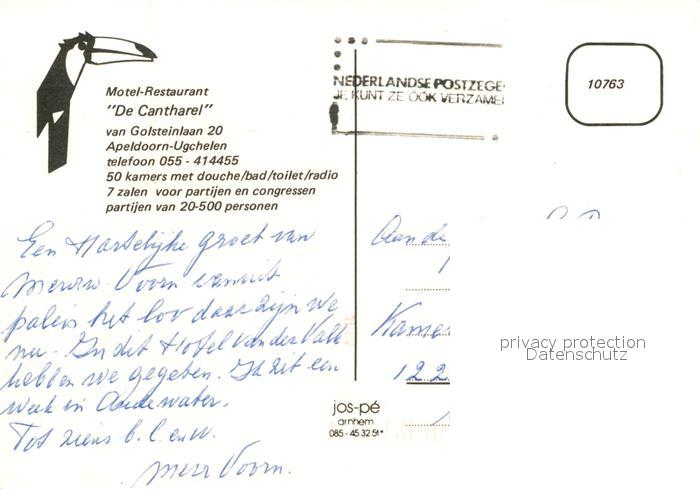 Motel-Restaurant
"De Cantharel"
van Golsteinlaan 20
Apeldoorn-Ugchelen
telefoon 055 - 414455
50 kamers met douche/bad/toilet/radio
7 zalen voor partijen en congressen
partijen van 20-500 personen
NEDERLANDSE POSTZEGE
JE KUNT ZE ÓÓK VERZAMEL
10763
Een Hartelijke groet van
Mevrw. Voorn vanuit
paleis het loo daar zijn we
nu. In dit Hotel van der Valk
hebben we gegeten. Ik zit een
week in Oudewater.
Tot ziens b.l. en w.
Mevr Voorn.
Aan de
Kamer
122
privacy protection
Datenschutz
jos-pé
arnhem
085 - 45 32 51*